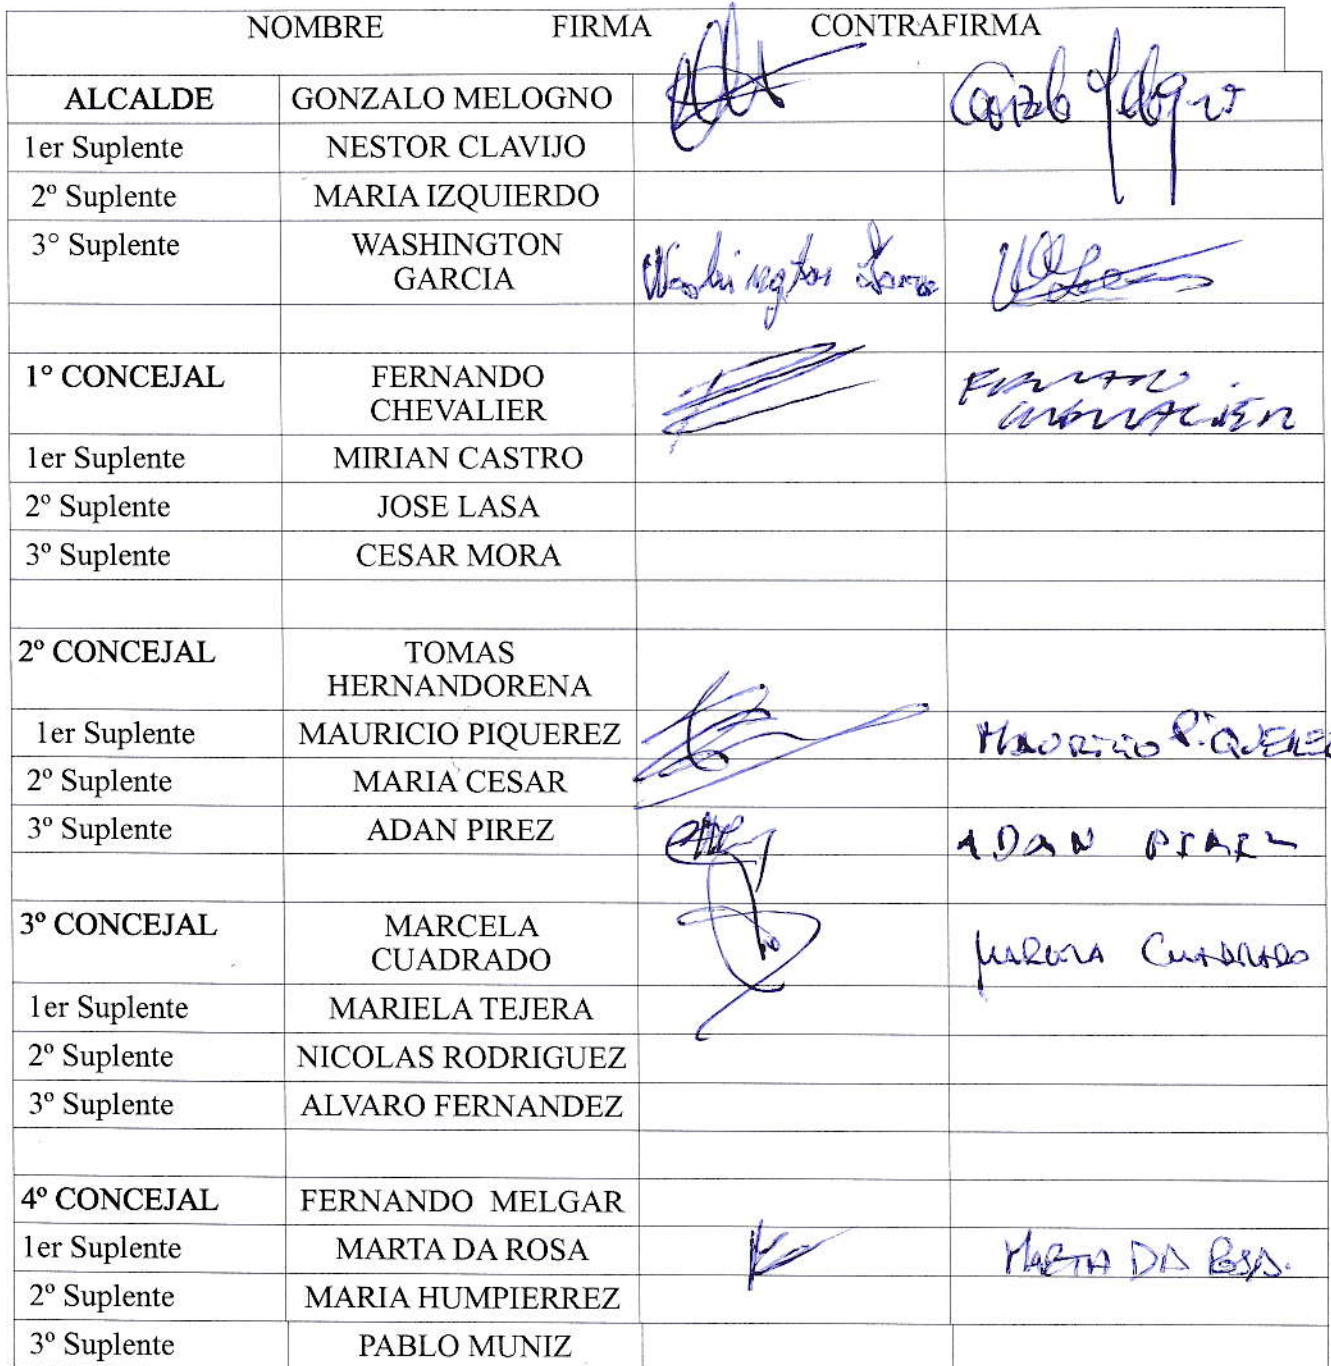 NOMBRE FIRMA CONTRAFIRMA
ALCALDE GONZALO MELOGNO Gonzalo Melogno
1er Suplente NESTOR CLAVIJO
2º Suplente MARIA IZQUIERDO
3° Suplente WASHINGTON
GARCIA Washington
1° CONCEJAL FERNANDO
CHEVALIER
1er Suplente MIRIAN CASTRO
2º Suplente JOSE LASA
3º Suplente CESAR MORA
2º CONCEJAL TOMAS
HERNANDORENA
1er Suplente MAURICIO PIQUEREZ MAURICIO PIQUEREZ
2º Suplente MARIA CESAR
3º Suplente ADAN PIREZ ADAN PIREZ
3º CONCEJAL MARCELA
CUADRADO MARCELA CUADRADO
1er Suplente MARIELA TEJERA
2º Suplente NICOLAS RODRIGUEZ
3º Suplente ALVARO FERNANDEZ
4º CONCEJAL FERNANDO MELGAR
1er Suplente MARTA DA ROSA MARTA DA ROSA.
2º Suplente MARIA HUMPIERREZ
3º Suplente PABLO MUNIZ